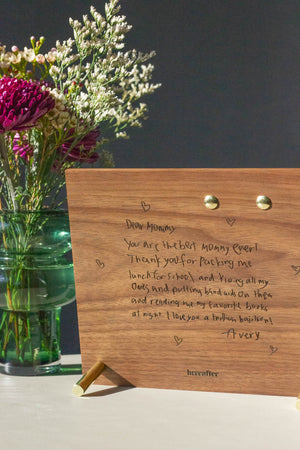 Dear Mommy
You are the best Mommy ever!
Thank you for Packing me
lunch for school and kissing all my
Owies and putting band aids on them
and reading me my favorite books
at night. I love you a trillion bajillion!
Avery
hereafter